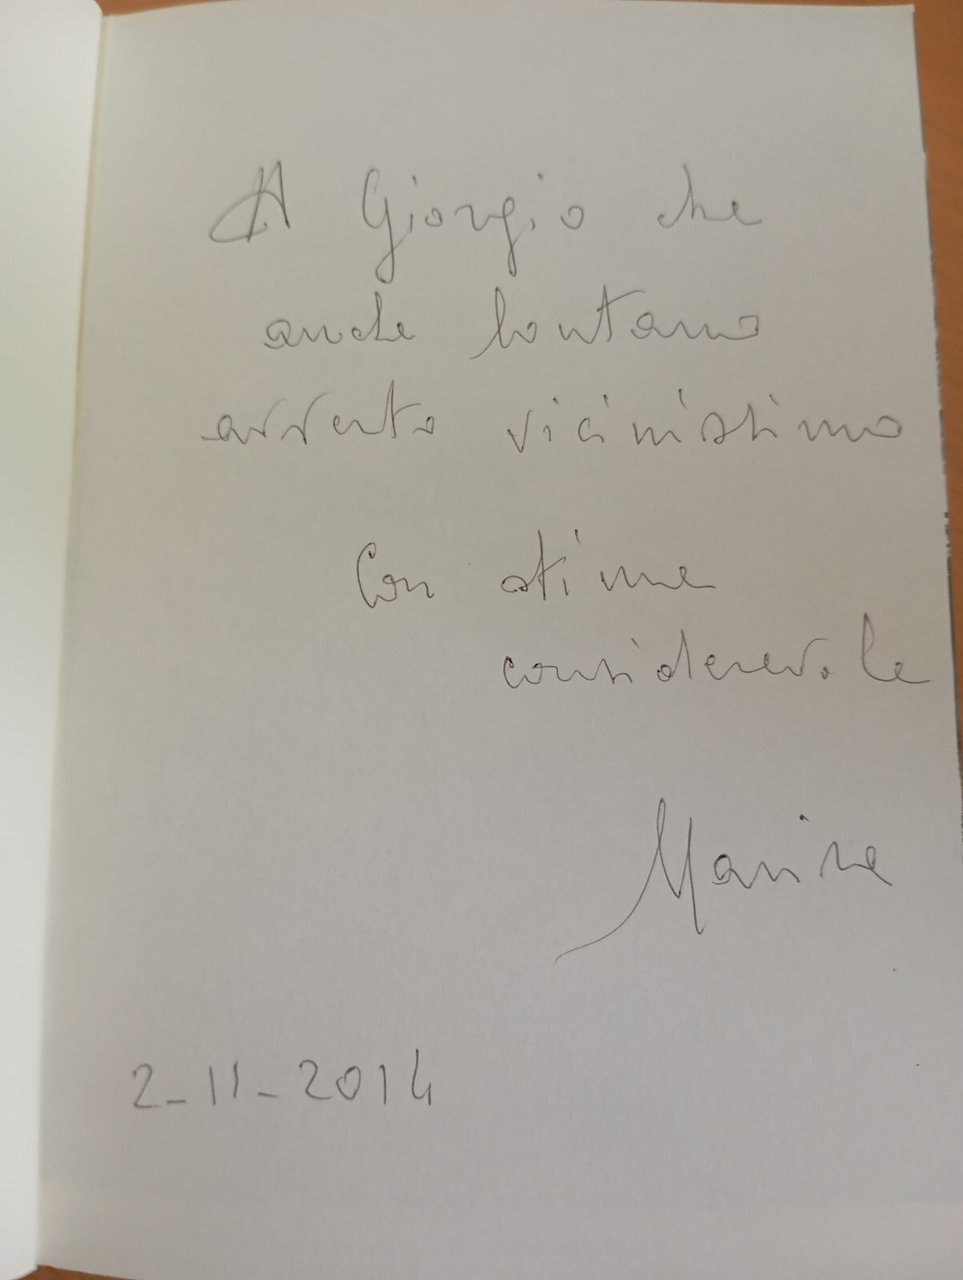 A Giorgio che
anche lontano
avverto vicinissimo
Con stima
considerevole
Marina
2-11-2014